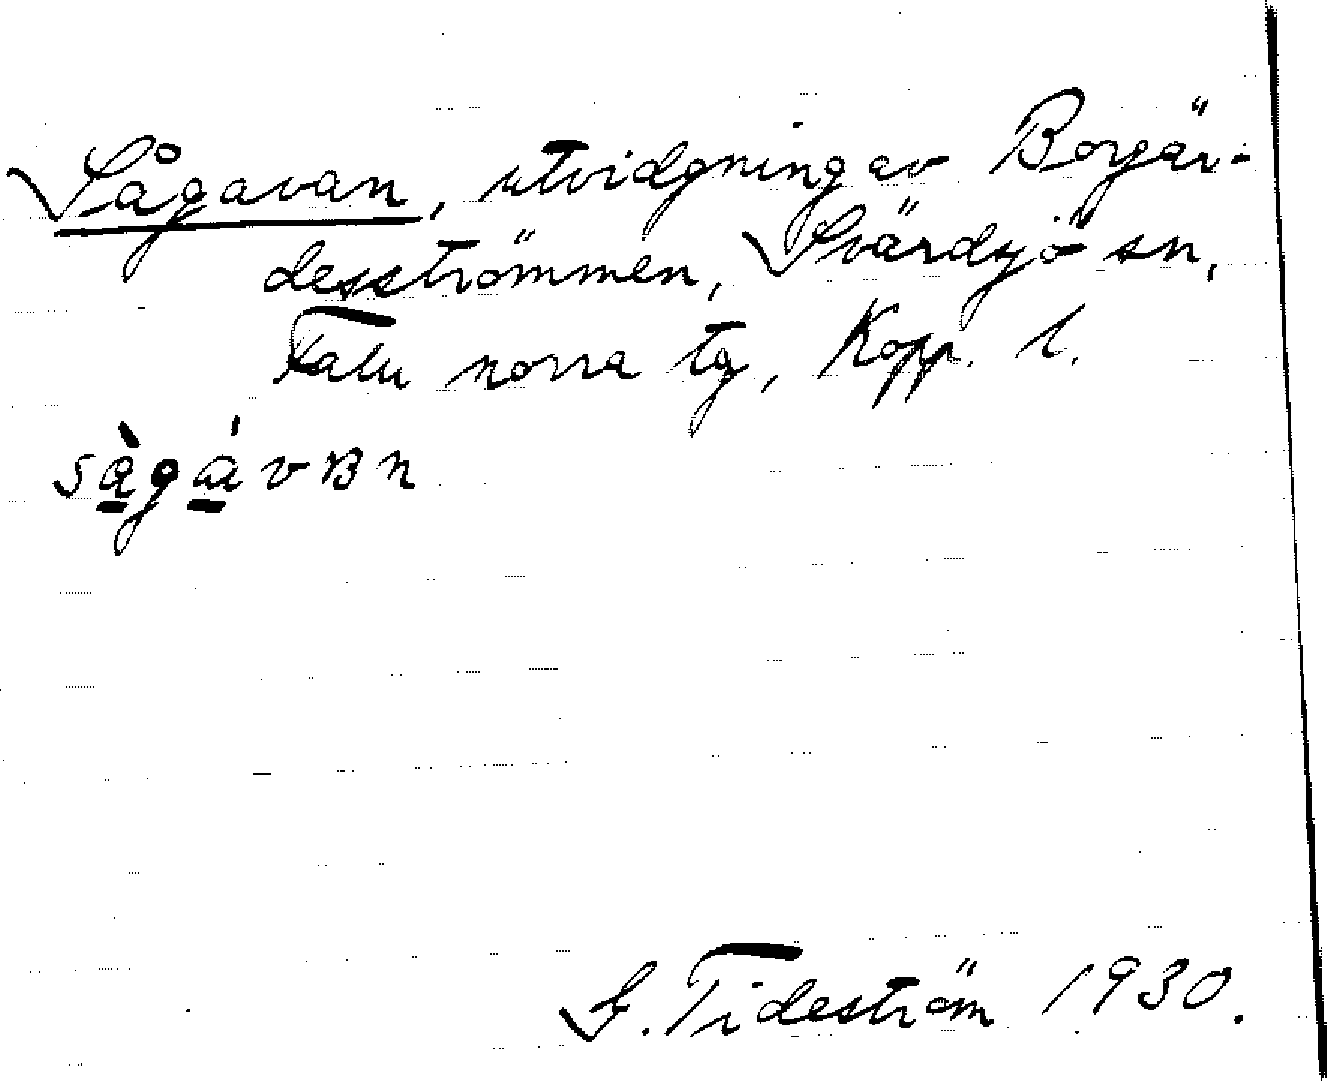 Sågavan, utvidgning av Borgär-
desströmmen, Svärdsjö sn,
Falu norra tg, Kopp. l.
S. Tideström 1930.